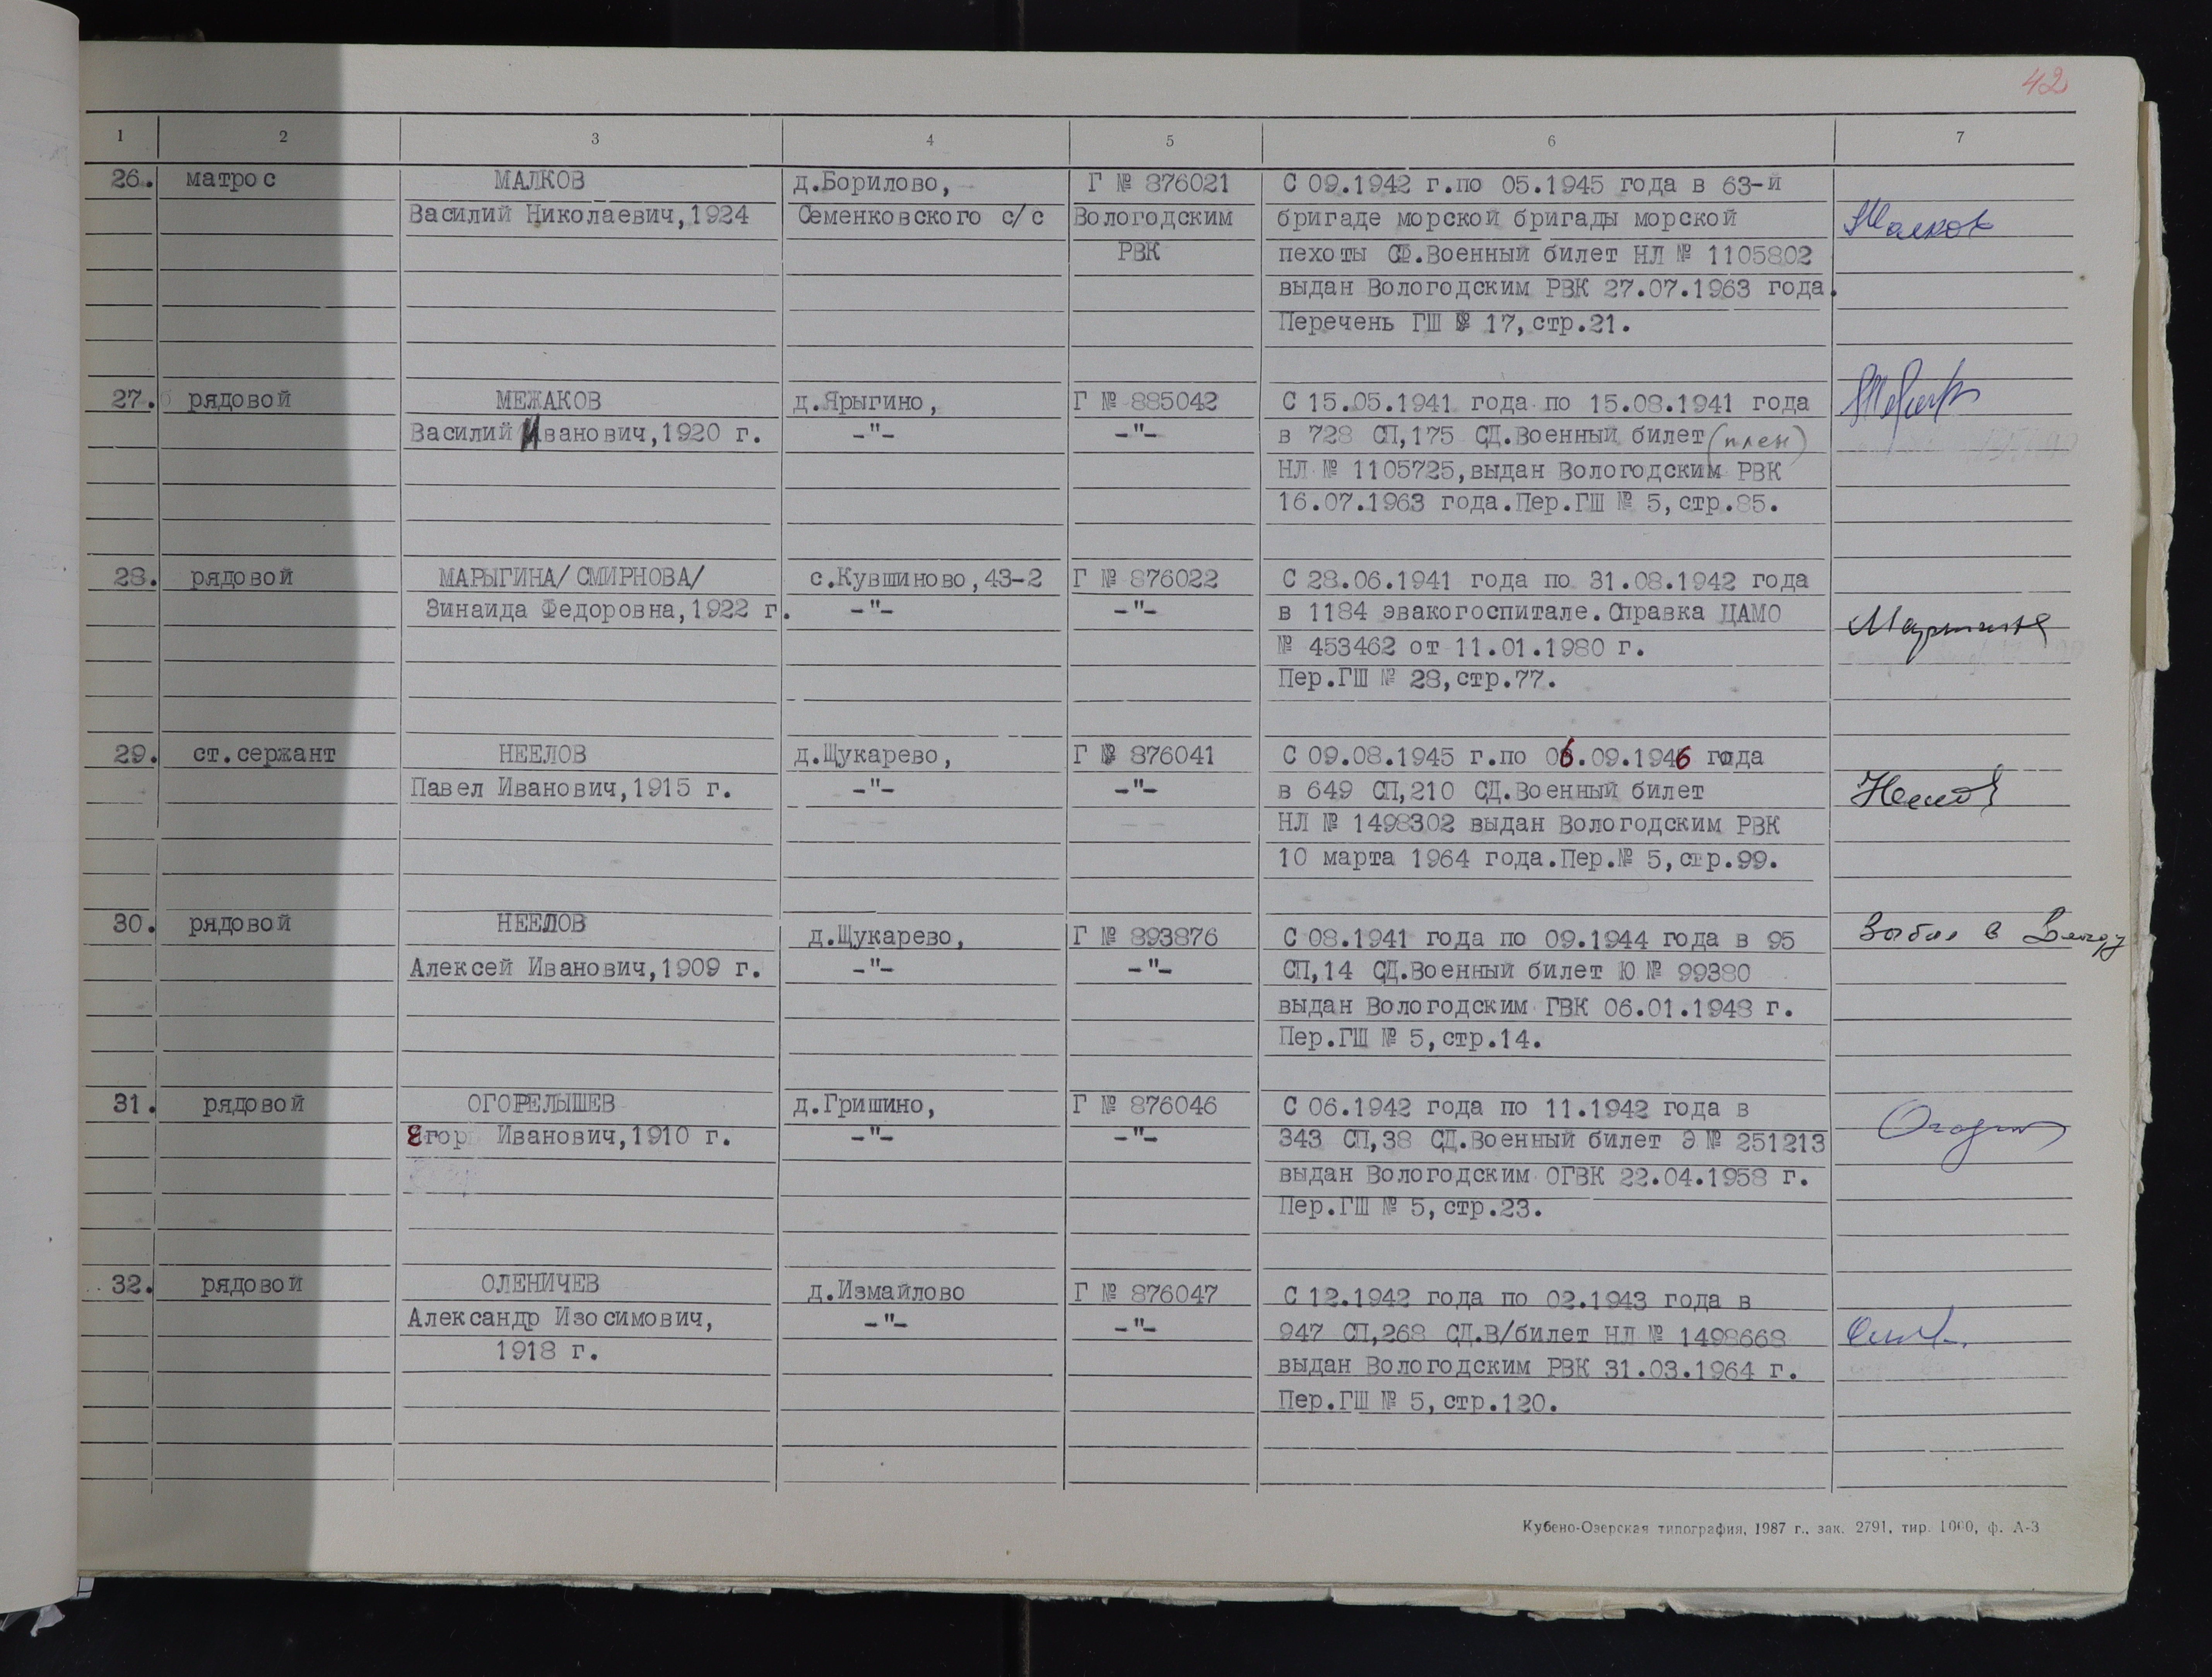 42
1 2 3 4 5 6 7
26. матрос МАЛКОВ д.Борилово, Г № 876021 С 09.1942 г.по 05.1945 года в 63-й
Василий Николаевич,1924 Семенковского с/с Вологодским бригаде морской бригады морской Малков
РВК пехоты СФ.Военный билет НЛ № 1105802
выдан Вологодским РВК 27.07.1963 года.
Перечень ГШ № 17,стр.21.
27. рядовой МЕЖАКОВ д.Ярыгино, Г № 885042 С 15.05.1941 года по 15.08.1941 года
Василий Иванович,1920 г. -"- -"- в 728 СП,175 СД.Военный билет (плен)
НЛ № 1105725,выдан Вологодским РВК
16.07.1963 года.Пер.ГШ № 5,стр.85.
28. рядовой МАРЫГИНА/СМИРНОВА/ с.Кувшиново,43-2 Г № 876022 С 28.06.1941 года по 31.08.1942 года
Зинаида Федоровна,1922 г. -"- -"- в 1184 эвакогоспитале.Справка ЦАМО Марыгина
№ 453462 от 11.01.1980 г.
Пер.ГШ № 28,стр.77.
29. ст.сержант НЕЕЛОВ д.Щукарево, Г № 876041 С 09.08.1945 г.по 06.09.1946 года
Павел Иванович,1915 г. -"- -"- в 649 СП,210 СД.Военный билет Неелов
НЛ № 1498302 выдан Вологодским РВК
10 марта 1964 года.Пер.№ 5,стр.99.
30. рядовой НЕЕЛОВ д.Щукарево, Г № 893876 С 08.1941 года по 09.1944 года в 95 Выбыл в Вологду
Алексей Иванович,1909 г. -"- -"- СП,14 СД.Военный билет Ю № 99380
выдан Вологодским ГВК 06.01.1948 г.
Пер.ГШ № 5,стр.14.
31. рядовой ОГОРЕЛЫШЕВ д.Гришино, Г № 876046 С 06.1942 года по 11.1942 года в
Егор Иванович,1910 г. -"- -"- 343 СП,38 СД.Военный билет Э № 251213
выдан Вологодским ОГВК 22.04.1958 г.
Пер.ГШ № 5,стр.23.
32. рядовой ОЛЕНИЧЕВ д.Измайлово Г № 876047 С 12.1942 года по 02.1943 года в
Александр Изосимович, -"- -"- 947 СП,268 СД.В/билет НЛ № 1498668
1918 г. выдан Вологодским РВК 31.03.1964 г.
Пер.ГШ № 5,стр.120.
Кубено-Озерская типография, 1987 г., зак. 2791, тир. 1000, ф. А-3